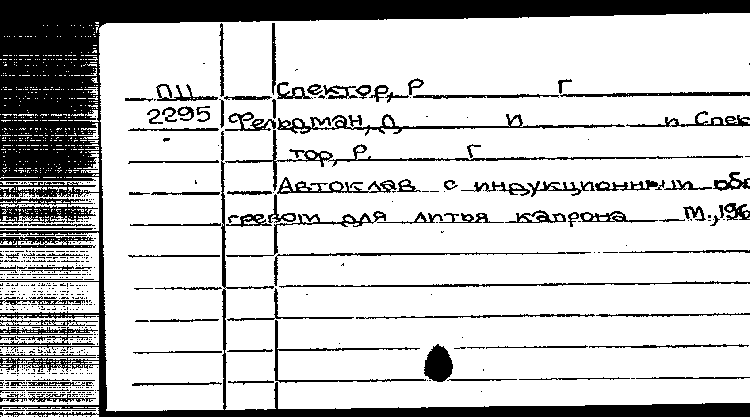 ПЦ Спектор, Р Г
2295 Фельдман, Д И и Спек
тор, Р. Г
Автоклав с индукционным обо
гревом для литья капрона М., 196